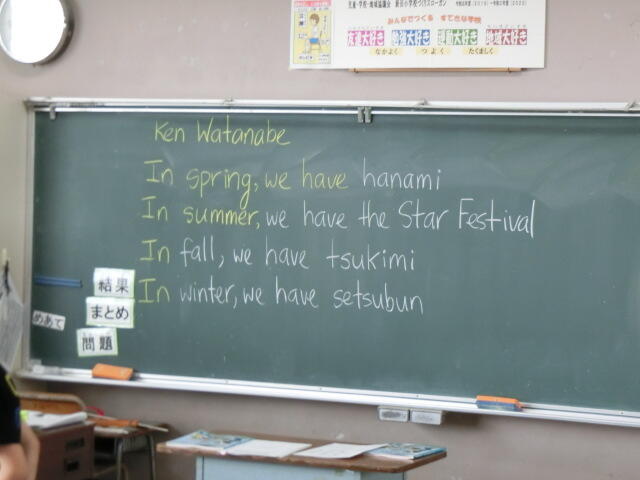 みんなでつくる すてきな学校
友達大好き 勉強大好き 運動大好き 地域大好き
なかよく つよく たくましく
Ken Watanabe
In spring, we have hanami
In summer, we have the Star Festival
In fall, we have tsukimi
In winter, we have setsubun
結果
まとめ
めあて
問題